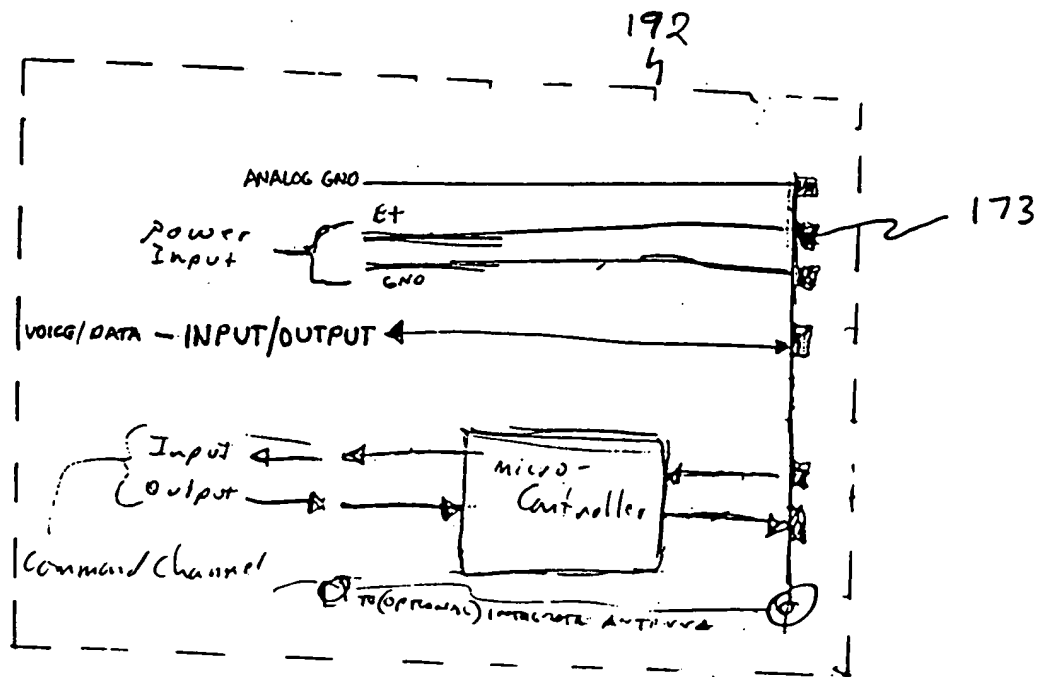 192
ANALOG GND
173
Power
Input
E+
GND
VOICE/DATA - INPUT/OUTPUT
Input
Output
Micro-
Controller
Command Channel
TO (OPTIONAL) INTEGRATE ANTENNA